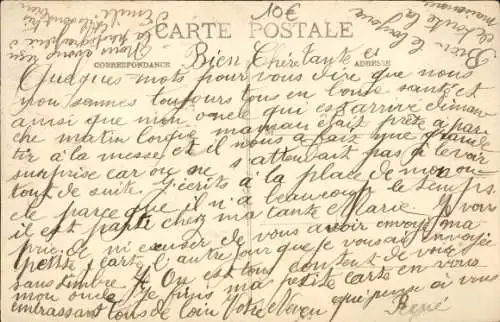 10€
CARTE POSTALE
CORRESPONDANCE
ADRESSE
Bien Chère tante et
Quelques mots pour vous dire que nous
nous sommes toujours tous en bonne santé et
ainsi que mon oncle qui est arrivé diman
che matin lorsque maman était prête à par
tir à la messe et il nous a fait une grande
surprise car on ne s'attendait pas à le voir
tout de suite. J'écris à la place de mon on
cle parce que il n'a beaucoup le temps
il est parti chez ma tante Marie. Je vous
prie de m'excuser de vous avoir envoyé ma
petite carte l'autre jour que je vous ai envoyée
sans timbre. On est tous content de voir
mon oncle. Je finis ma petite carte en vous
embrassant tous de loin Votre Neveu qui pense à vous
René
Bien le bonjour
à toute la
Nous avons reçu
la photographie
Emile